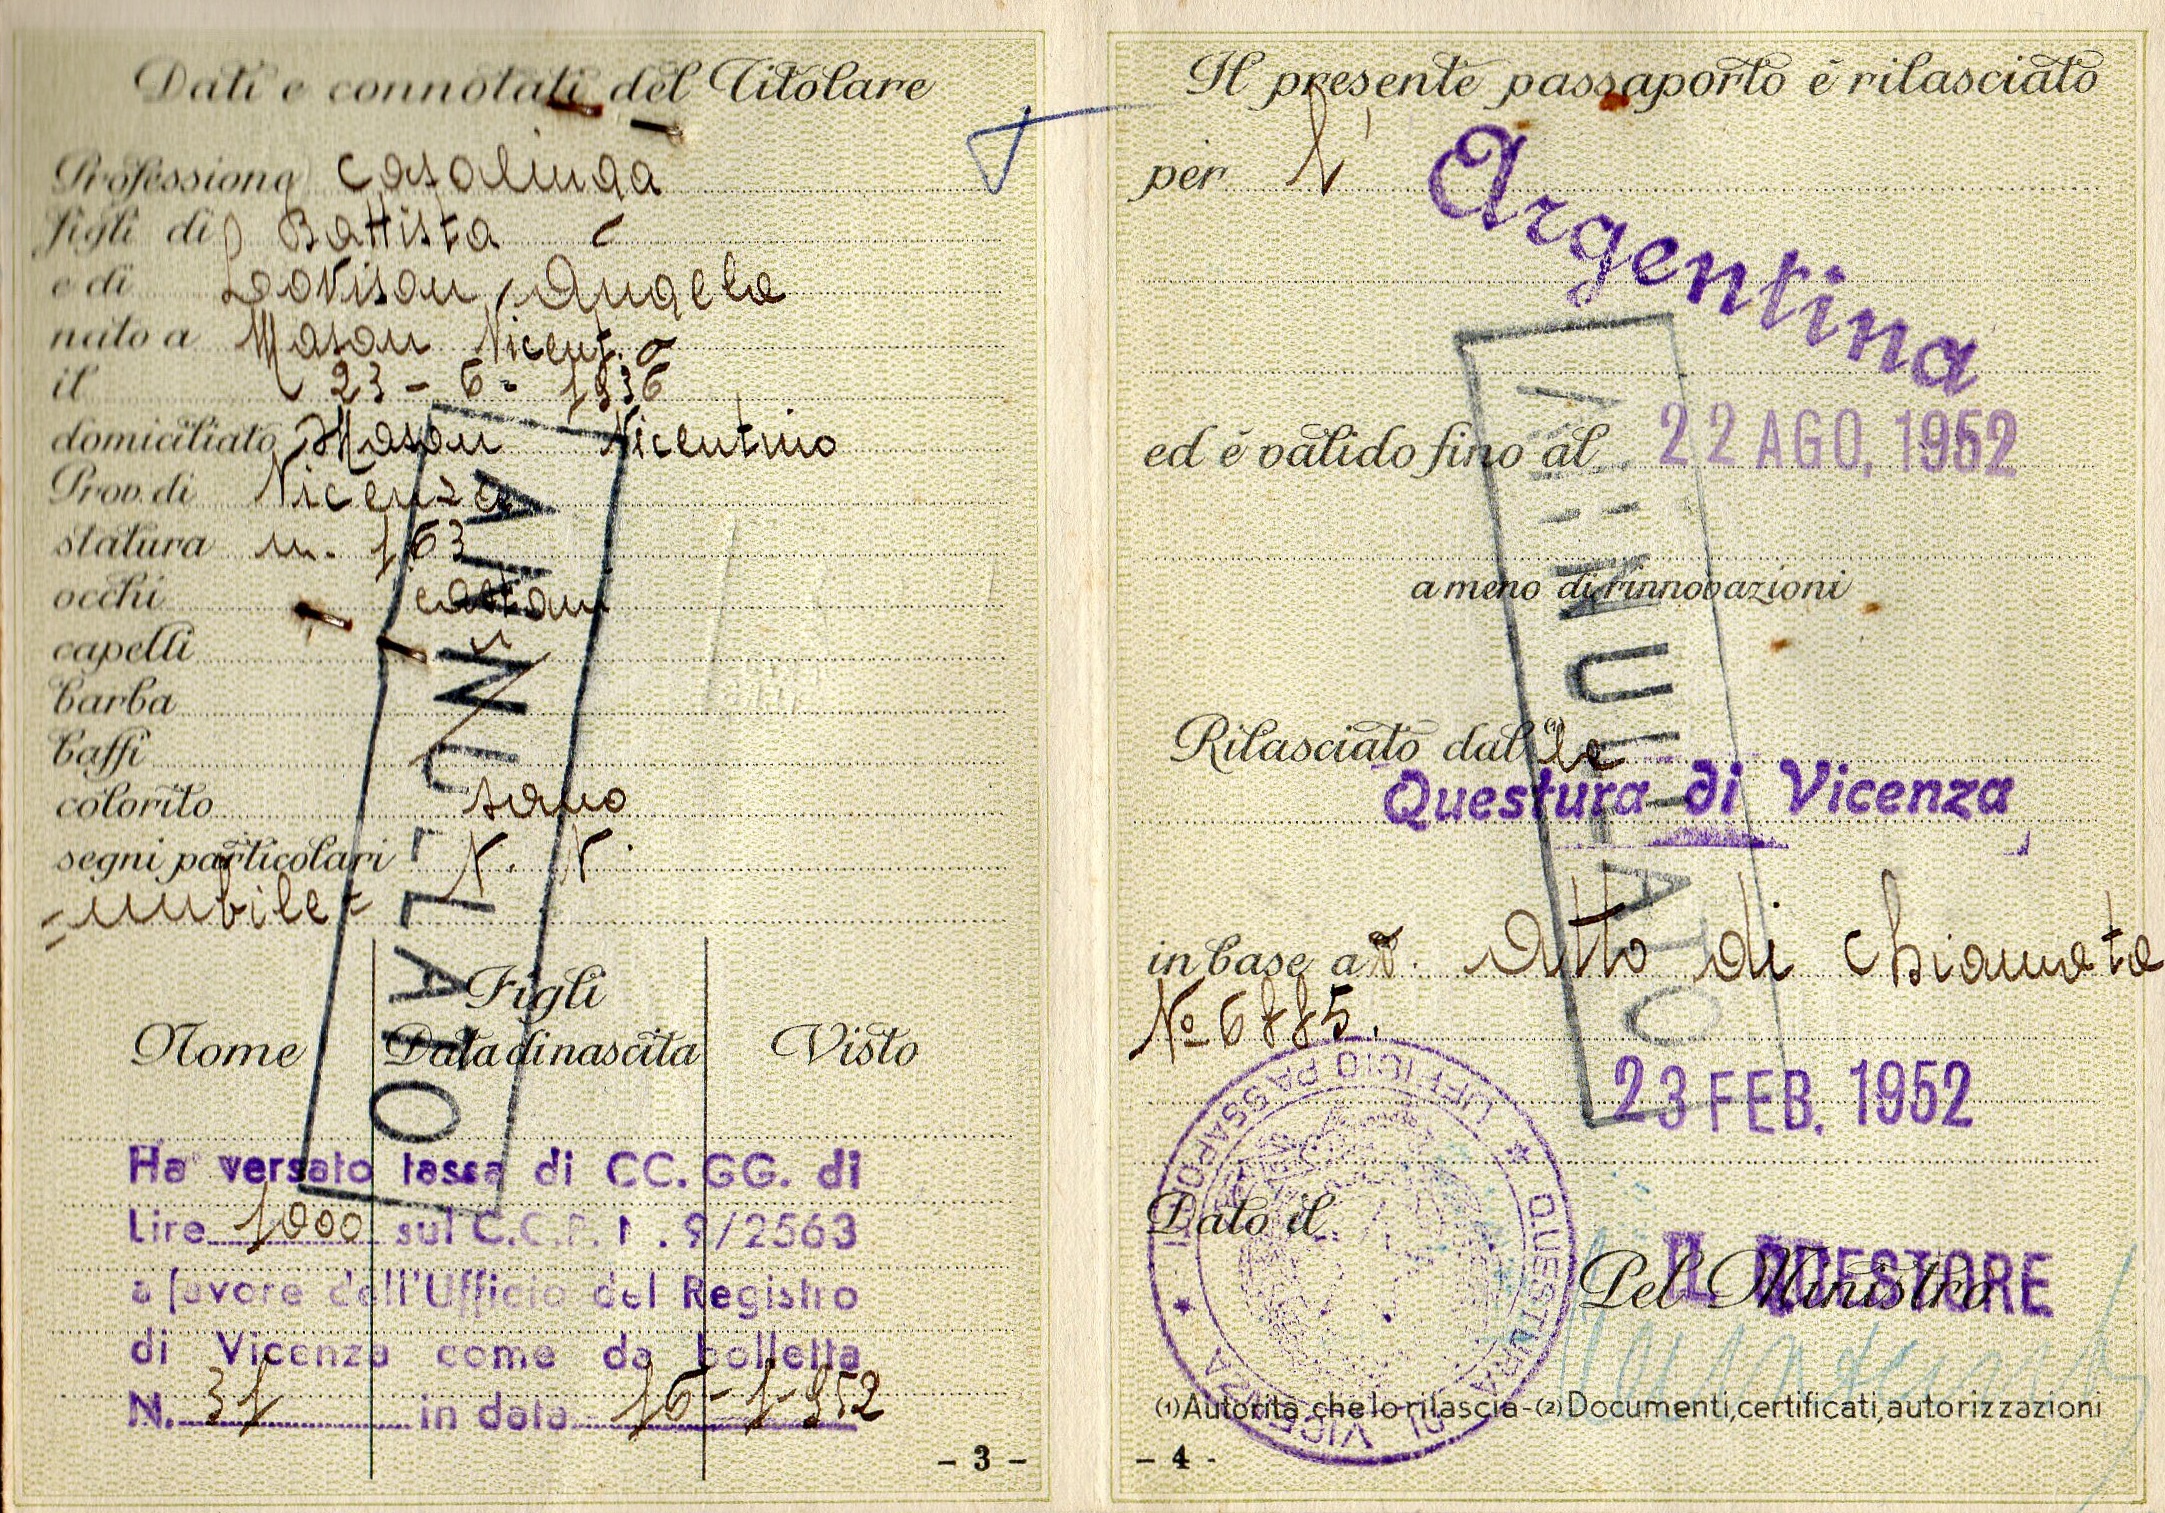 Dati e connotati del Titolare
Professione casalinga
figli di Battista
e di Lovison Angela
nato a Mason Vicent.
il 23-6-1936
domiciliato Mason Vicentino
Prov. di Vicenza
statura m. 1,63
occhi castani
capelli
barba
baffi
colorito sano
segni particolari N. N.
=nubile=
Figli
Nome Data di nascita Visto
Ha versato tassa di CC. GG. di
Lire 1000 sul C.C.P. N. 9/2563
a favore dell'Ufficio del Registro
di Vicenza come da bolletta
N. 31 in data 16-1-952
- 3 -
ANNULLATO
Il presente passaporto è rilasciato
per l' Argentina
ed è valido fino al 22 AGO. 1952
a meno di rinnovazioni
Rilasciato dalla
Questura di Vicenza
in base a Atto di chiamata
No
23 FEB. 1952
Dato il
Pel Ministro
IL QUESTORE
QUESTURA DI VICENZA
UFFICIO PASSAPORTI
(1) Autorità che lo rilascia - (2) Documenti, certificati, autorizzazioni
- 4 -
ANNULLATO